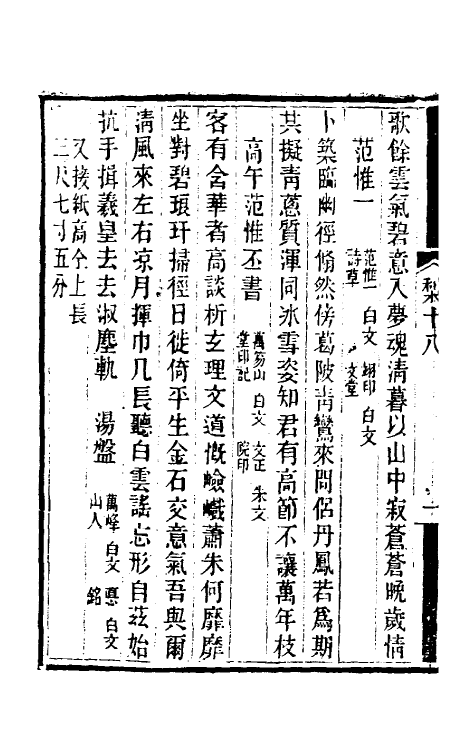 歌餘雲氣碧意入夢魂清暮以山中寂蒼蒼晚歲情
范惟一 范惟一詩草 白文 翊印文堂 白文
卜築臨幽徑翛然傍葛陂青鸞來問侶丹鳳若為期
其擬青蔥質渾同冰雪姿知君有高節不讓萬年枝
高午范惟丕書 萬笏山堂印記 白文 文正院印 朱文
客有舍華者高談析玄理文道慨嶮巇蕭朱何靡靡
坐對碧琅玕掃徑日徙倚平生金石交意氣吾與爾
清風來左右凉月揮巾几長聽白雲謠忘形自茲始
抗手揖羲皇去去淑塵軌 湯盤 萬峰山人 白文 銘 白文
又接紙高仝上長
三尺七寸五分
十八